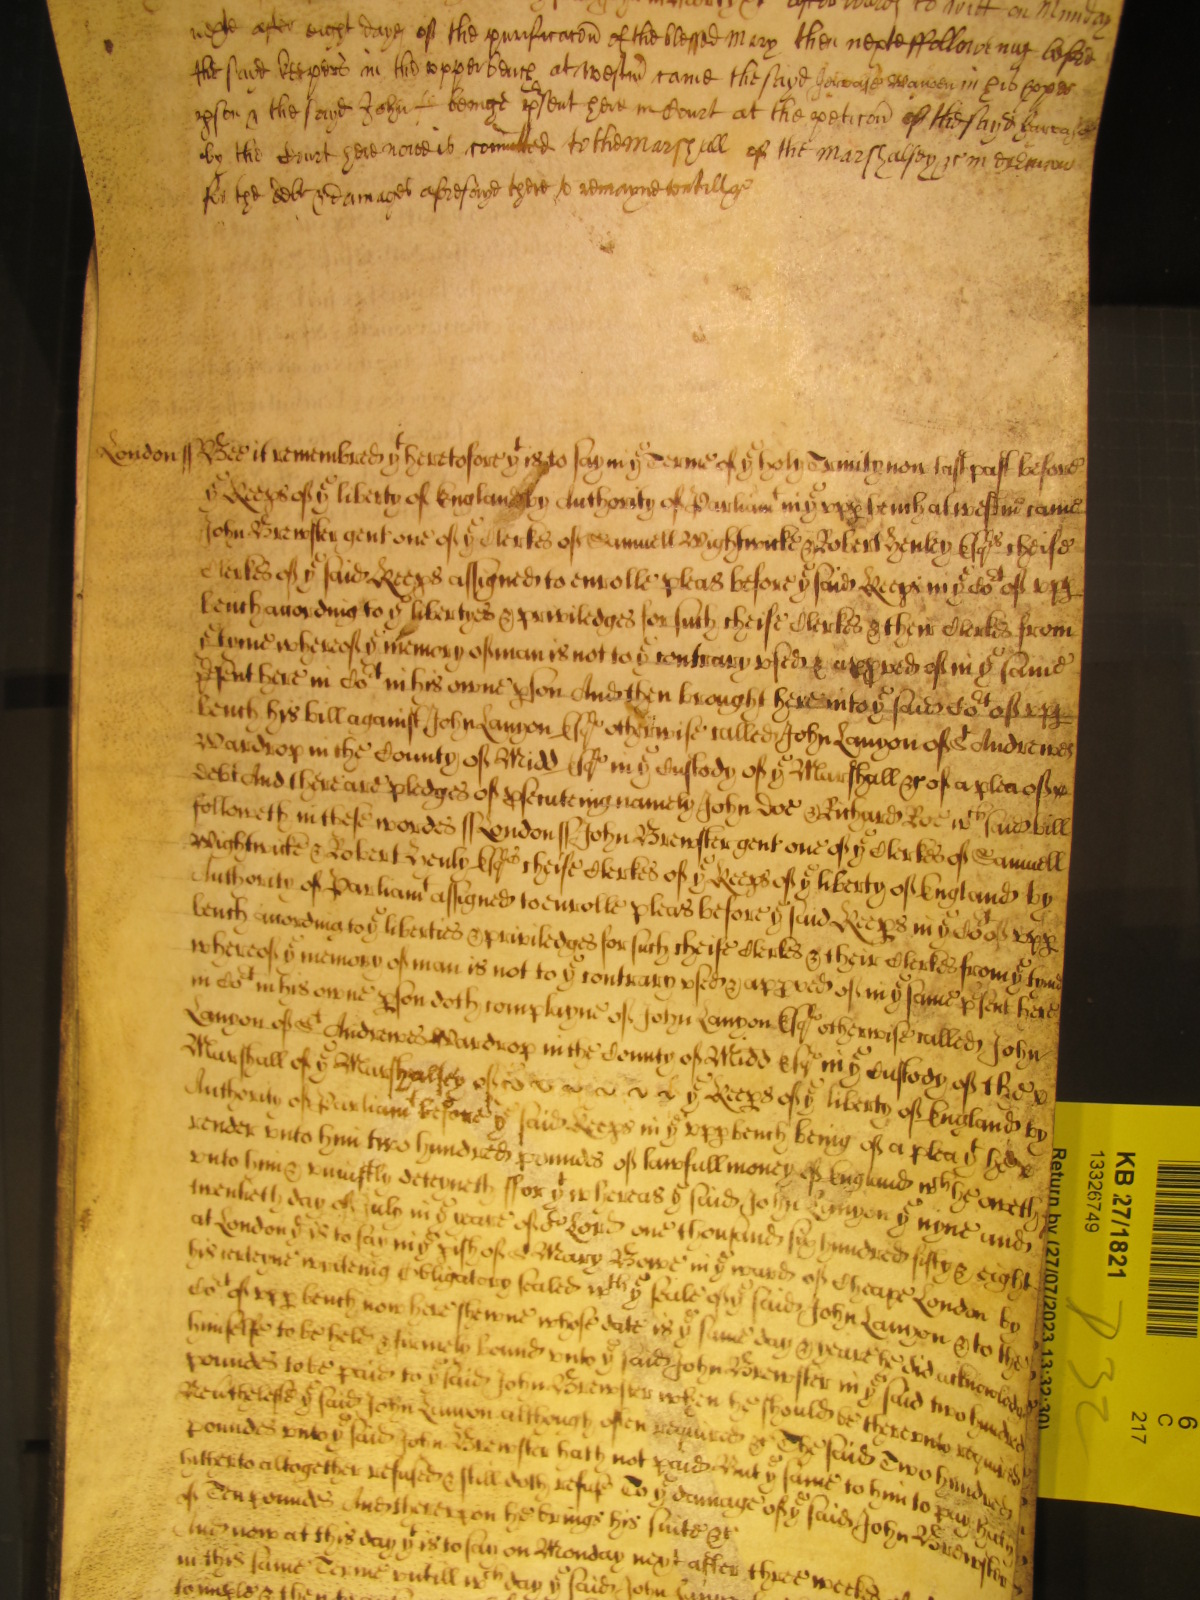 afterwards to witt on Munday
next after eight dayes of the purificacõn of the blessed Mary then nexte ffollowinge before
the saide keepers in the upper bench at Westm̃ came the sayd in his proper
pson & the sayd John beinge p̃sent here in Court at the peticõn of the sayd
by the Court here nowe is comitted to the Marshall of the Marshalsey &c in execucon
for the debt & damages aforesayd there to remayne untill &c
London ss Bee it remembred yt heretofore yt is to say in ye Terme of ye holy Trinity now last past before
ye Keeps of ye liberty of England by Authority of Parliamt in ye upp bench at westmr came
John Brewster gent one of ye Clerkes of Samuell Wightwicke & Robert Henley Esqrs cheife
Clerkes of ye said Keeps assigned to enrolle pleas before ye said Keeps in ye Cot of upp
bench according to ye libertyes & priviledges for such cheife Clerkes & their Clerkes from
ye tyme whereof ye memory of man is not to ye contrary used & appved of in ye same
p̃sent here in Cot in his owne pson And then brought here into ye said Cot of upp
bench his bill against John Lanyon Esqr otherwise called John Lanyon of St Andrewes
Wardrop in the County of Midd Esqr in ye Custody of ye Marshall &c of a plea of
debt And there are pledges of psecuteing namely John Doe & Richard Roe wch said bill
followeth in these wordes ss London ss John Brewster gent one of ye Clerkes of Samuell
Wightwicke & Robert Henly Esqrs cheife Clerkes of ye Keeps of ye liberty of England by
Authority of Parliamt assigned to enrolle pleas before ye said Keeps in ye Cot of upp
bench according to ye liberties & priviledges for such cheife Clerkes & their Clerkes from ye tyme
whereof ye memory of man is not to ye contrary used & appved of in ye same p̃sent here
in Cot in his owne pson doth complayne of John Lanyon Esqr otherwise called John
Lanyon of St Andrewes Wardrop in the County of Midd Esqr in ye Custody of the
Marshall of ye Marshalsey of ye Keeps of ye liberty of England by
Authority of Parliamt before ye said Keeps in ye upp bench being of a plea yt hee
render unto him two hundred poundes of lawfull money of England wch he oweth
unto him & uniustly deteyneth ffor yt whereas ye said John Lanyon ye nyne and
twentieth day of July in ye yeare of or Lord one thousand six hundred fifty & eight
at London yt is to say in ye pish of St Mary Bowe in ye ward of Cheape London by
his certeyne writeing Obligatory sealed wth ye seale of ye said John Lanyon & to the
Cot of upp bench now here shewne whose date is ye same day & yeare he did acknowledge
himselfe to be held & firmely bound unto ye said John Brewster in ye said two hundred
poundes to be paid to ye said John Brewster when he should be thereunto required
Neverthelesse ye said John Lanyon although often required &c The said Two hundred
poundes unto ye said John Brewster hath not paid But ye same to him to pay hath
hitherto altogether refused & still doth refuse To ye damage of ye said John Brewster
of Ten poundes And thereupon he brings his suite &c
And now at this day yt is to say on Monday next after three weekes of
in this same Terme untill wch day ye said John Lanyon
to imple & then to
KB 27/1821
13326749
Return by (27/07/2023 13:32:30)
6
C
217
P 32